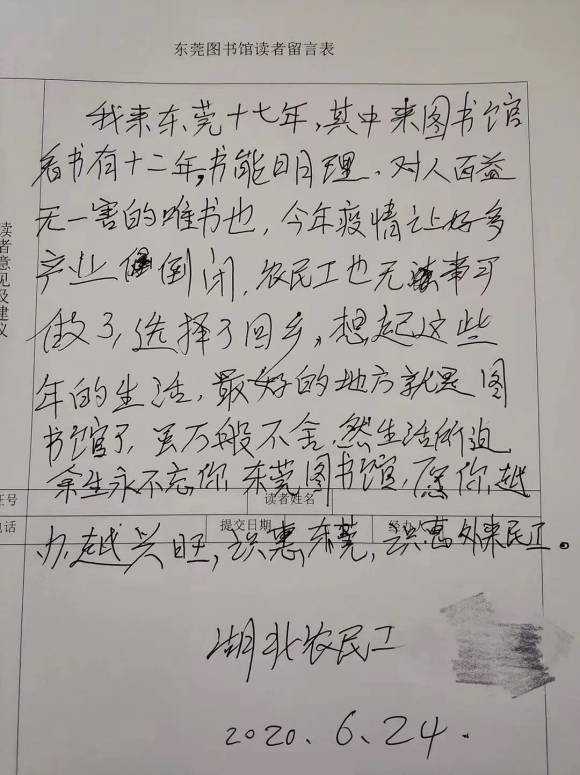 东莞图书馆读者留言表
我来东莞十七年，其中来图书馆
看书有十二年，书能明理、对人百益
无一害的唯书也，今年疫情让好多
产业倒闭，农民工也无事可
做了，选择了回乡，想起这些
年的生活，最好的地方就是图
书馆了，虽万般不舍，然生活所迫
余生永不忘你，东莞图书馆，愿你越
办越兴旺，识惠东莞，识惠外来民工。
湖北农民工
2020．6．24．
读者意见及建议
证号
读者姓名
电话
提交日期
经办人